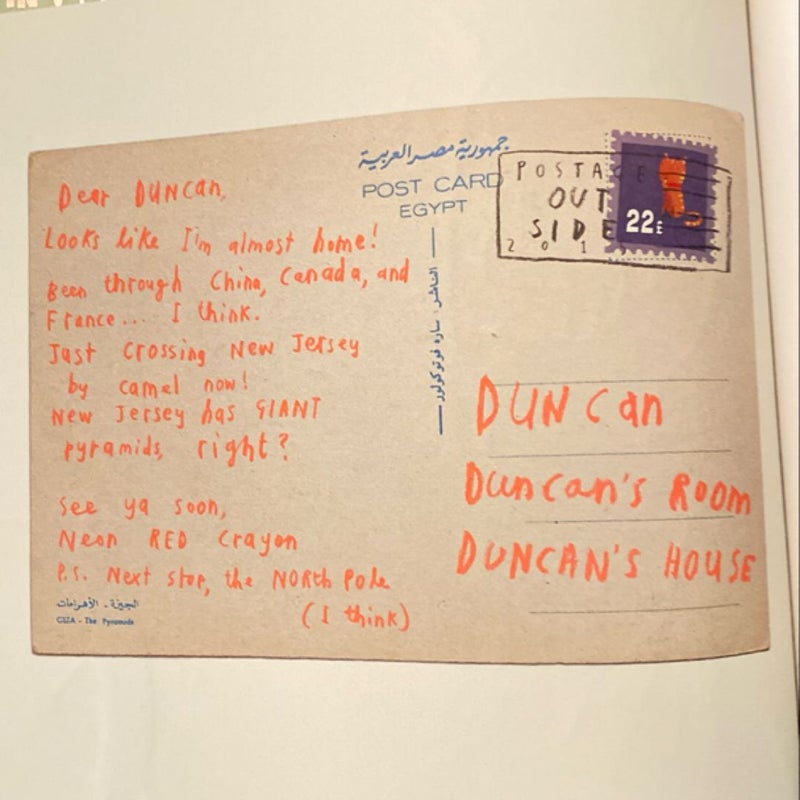 Dear DUNCAN,
Looks like I'm almost home!
Been through China, Canada, and
France... I think.
Just crossing New Jersey
by camel now!
New Jersey has GIANT
pyramids, right?
See ya soon,
Neon RED Crayon
P.S. Next stop, the NORTH POLE
(I think)
الجيزة - الأهرامات
GIZA - The Pyramids
جمهورية مصر العربية
POST CARD
EGYPT
الناشر: ساره فوتوكولور
POSTAGE
OUT
SIDE
2 0 1
22E
DUNCAN
Duncan's Room
DUNCAN'S HOUSE